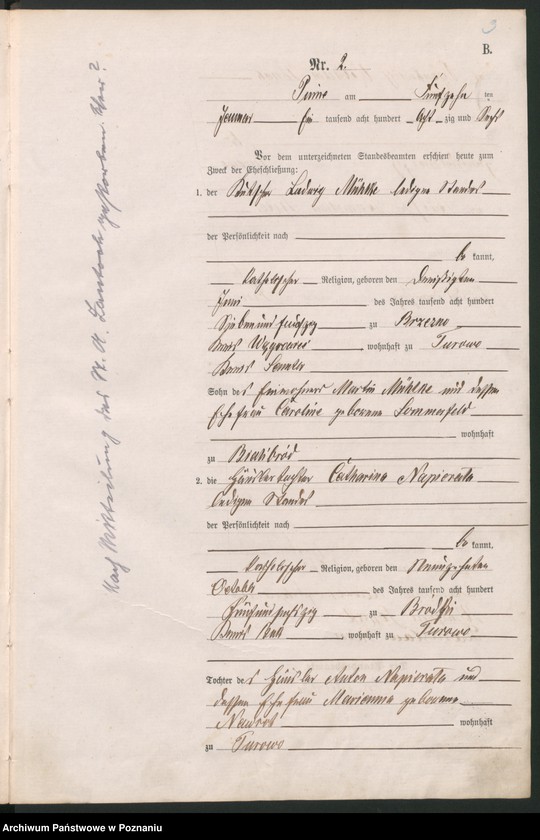 3
B.
Nr. 2.
Pinne am Fünfzehn ten
Januar Ein tausend acht hundert Acht zig und Sechs
Vor dem unterzeichneten Standesbeamten erschien heute zum
Zweck der Eheschließung:
1. der Kutscher Ludwig Mühlke ledigen Standes
der Persönlichkeit nach
be kannt,
katholischer Religion, geboren den Dreißigsten
Juni des Jahres tausend acht hundert
Sieben und fünfzig zu Brzezno
Kreis Wągrowiec, wohnhaft zu Turowo
Kreis Samter
Sohn des Einwohners Martin Mühlke und dessen
Ehefrau Caroline geborene Sommerfeld
wohnhaft
zu Bialibród
2. die Häuslertochter Catharina Napierata
ledigen Standes
der Persönlichkeit nach
be kannt,
katholischer Religion, geboren den Neunzehnten
October des Jahres tausend acht hundert
sechszig zu
Kreis wohnhaft zu Turowo
Tochter des Häusler Anton Napierata und
dessen Ehefrau Marianna geborene
Nawrot wohnhaft
zu Turowo
Nach Mitteilung des St. A. gestorben. Wer?
Archiwum Państwowe w Poznaniu